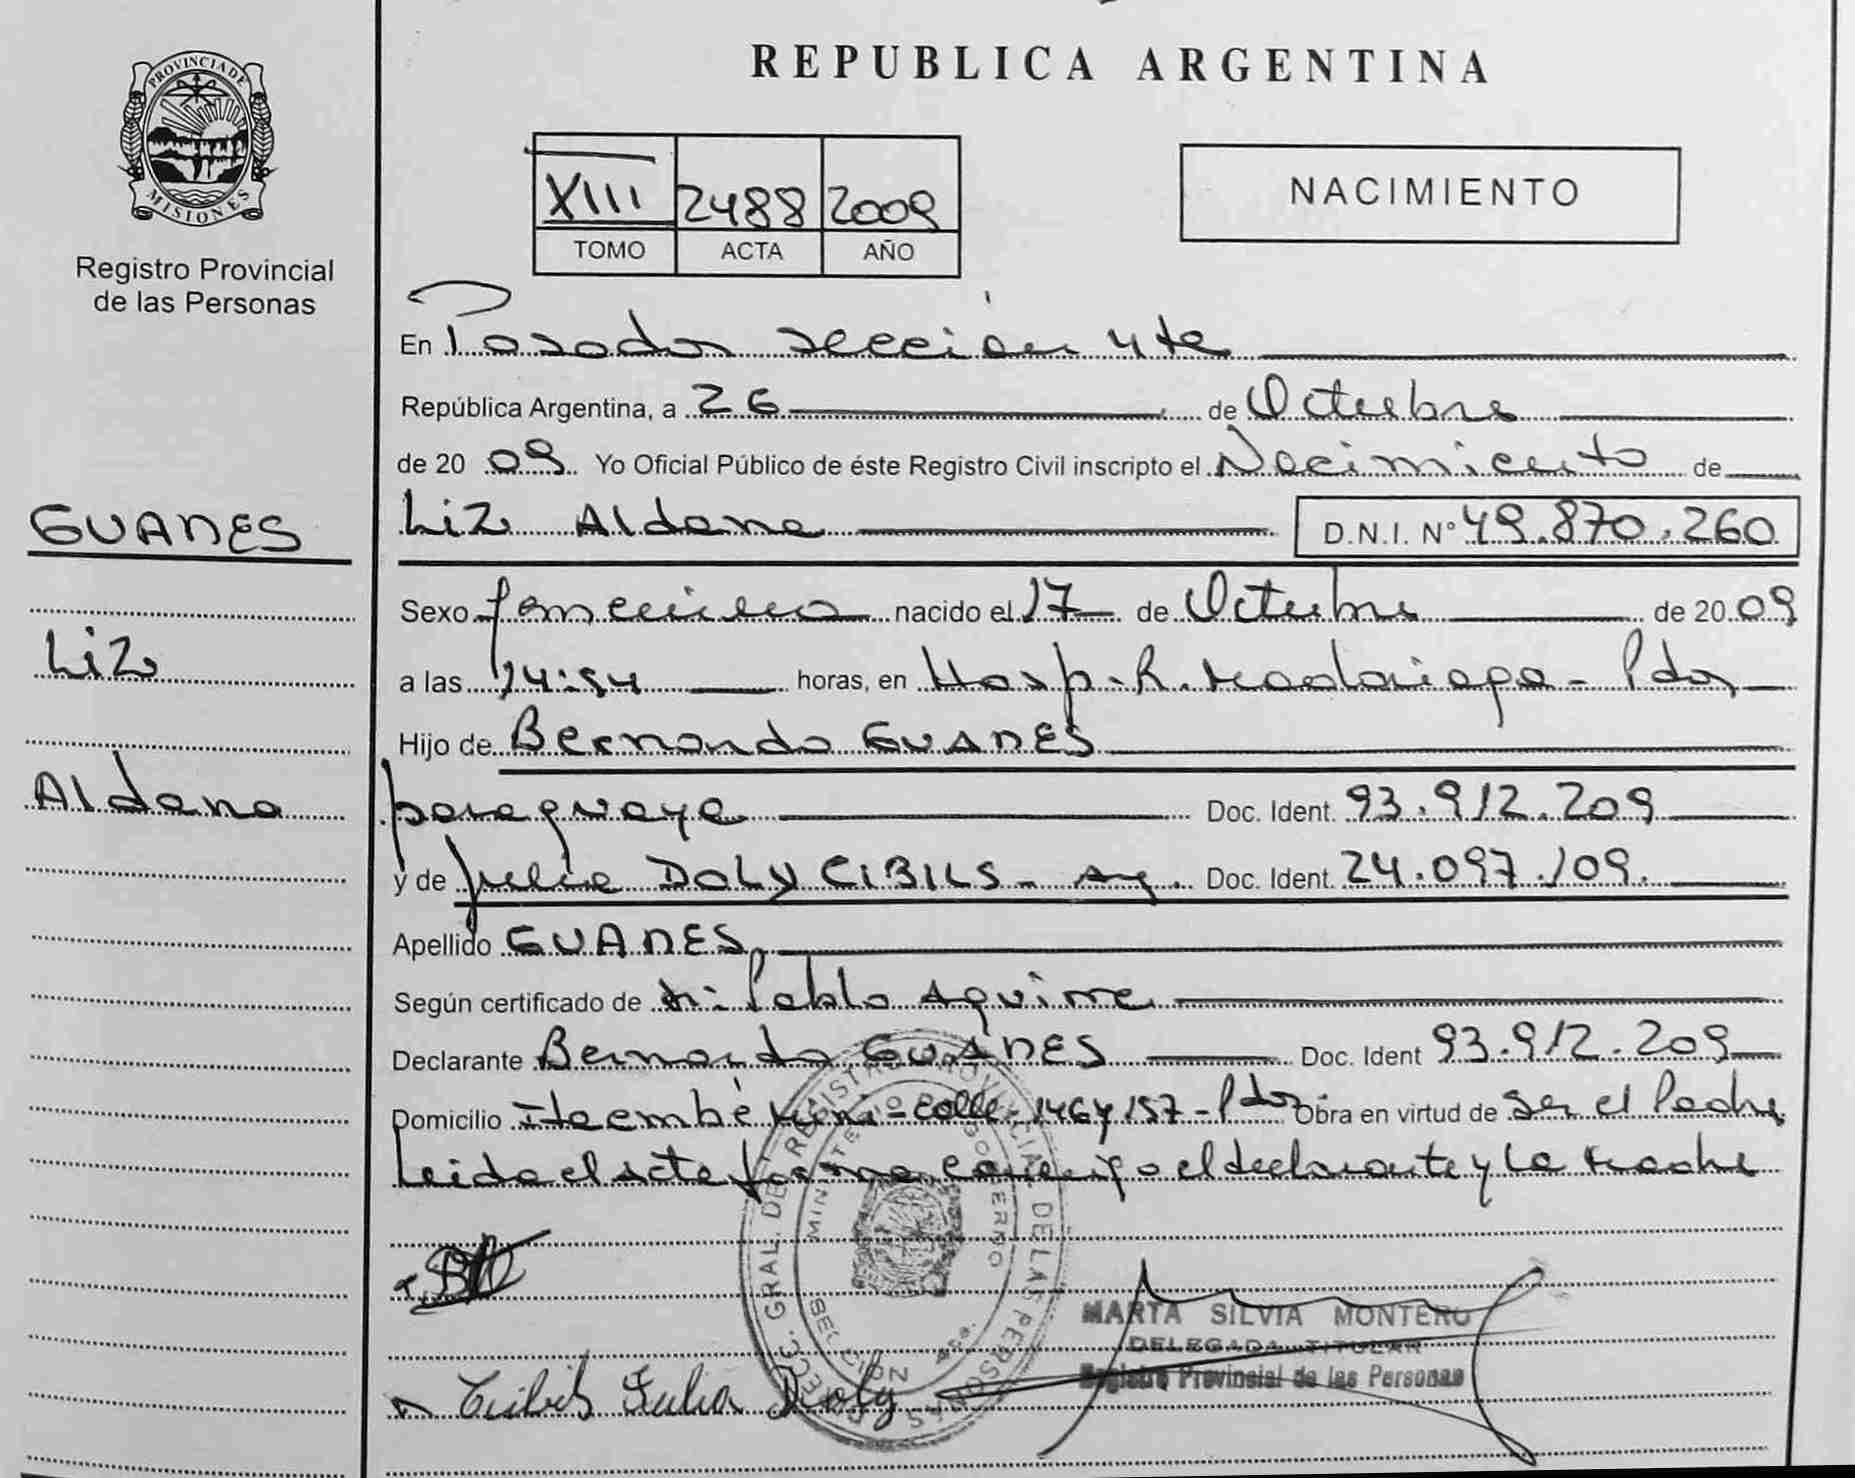 REPUBLICA ARGENTINA
PROVINCIA DE
MISIONES
Registro Provincial
de las Personas
XIII 2488 2009
TOMO ACTA AÑO
NACIMIENTO
En Posadas sección 4ta
República Argentina, a 26 de Octubre
de 20 09 Yo Oficial Público de éste Registro Civil inscripto el Nacimiento de
Liz Aldana D.N.I. Nº 49.870.260
GUANES
Liz
Aldana
Sexo femenino nacido el 17 de Octubre de 20 09
a las 14:54 horas, en Hosp. R. Madariaga - Pdas
Hijo de Bernardo GUANES
paraguaya Doc. Ident. 93.912.209
y de Julia DOLY CIBILS - Arg. Doc. Ident. 24.097.109.
Apellido GUANES
Según certificado de Pablo Aguirre
Declarante Bernardo GUANES Doc. Ident 93.912.209
Domicilio Itaembé Mini - calle 146 y 157 - Pdas Obra en virtud de ser el Padre
Leida el acta firma conmigo el declarante y la Madre
DIRECC. GRAL. DEL REGISTRO PROVINCIAL DE LAS PERSONAS
MINISTERIO DE GOBIERNO
SECCION 4ta.
MARTA SILVIA MONTERO
DELEGADA TITULAR
Registro Provincial de las Personas
Cibils Julia Doly